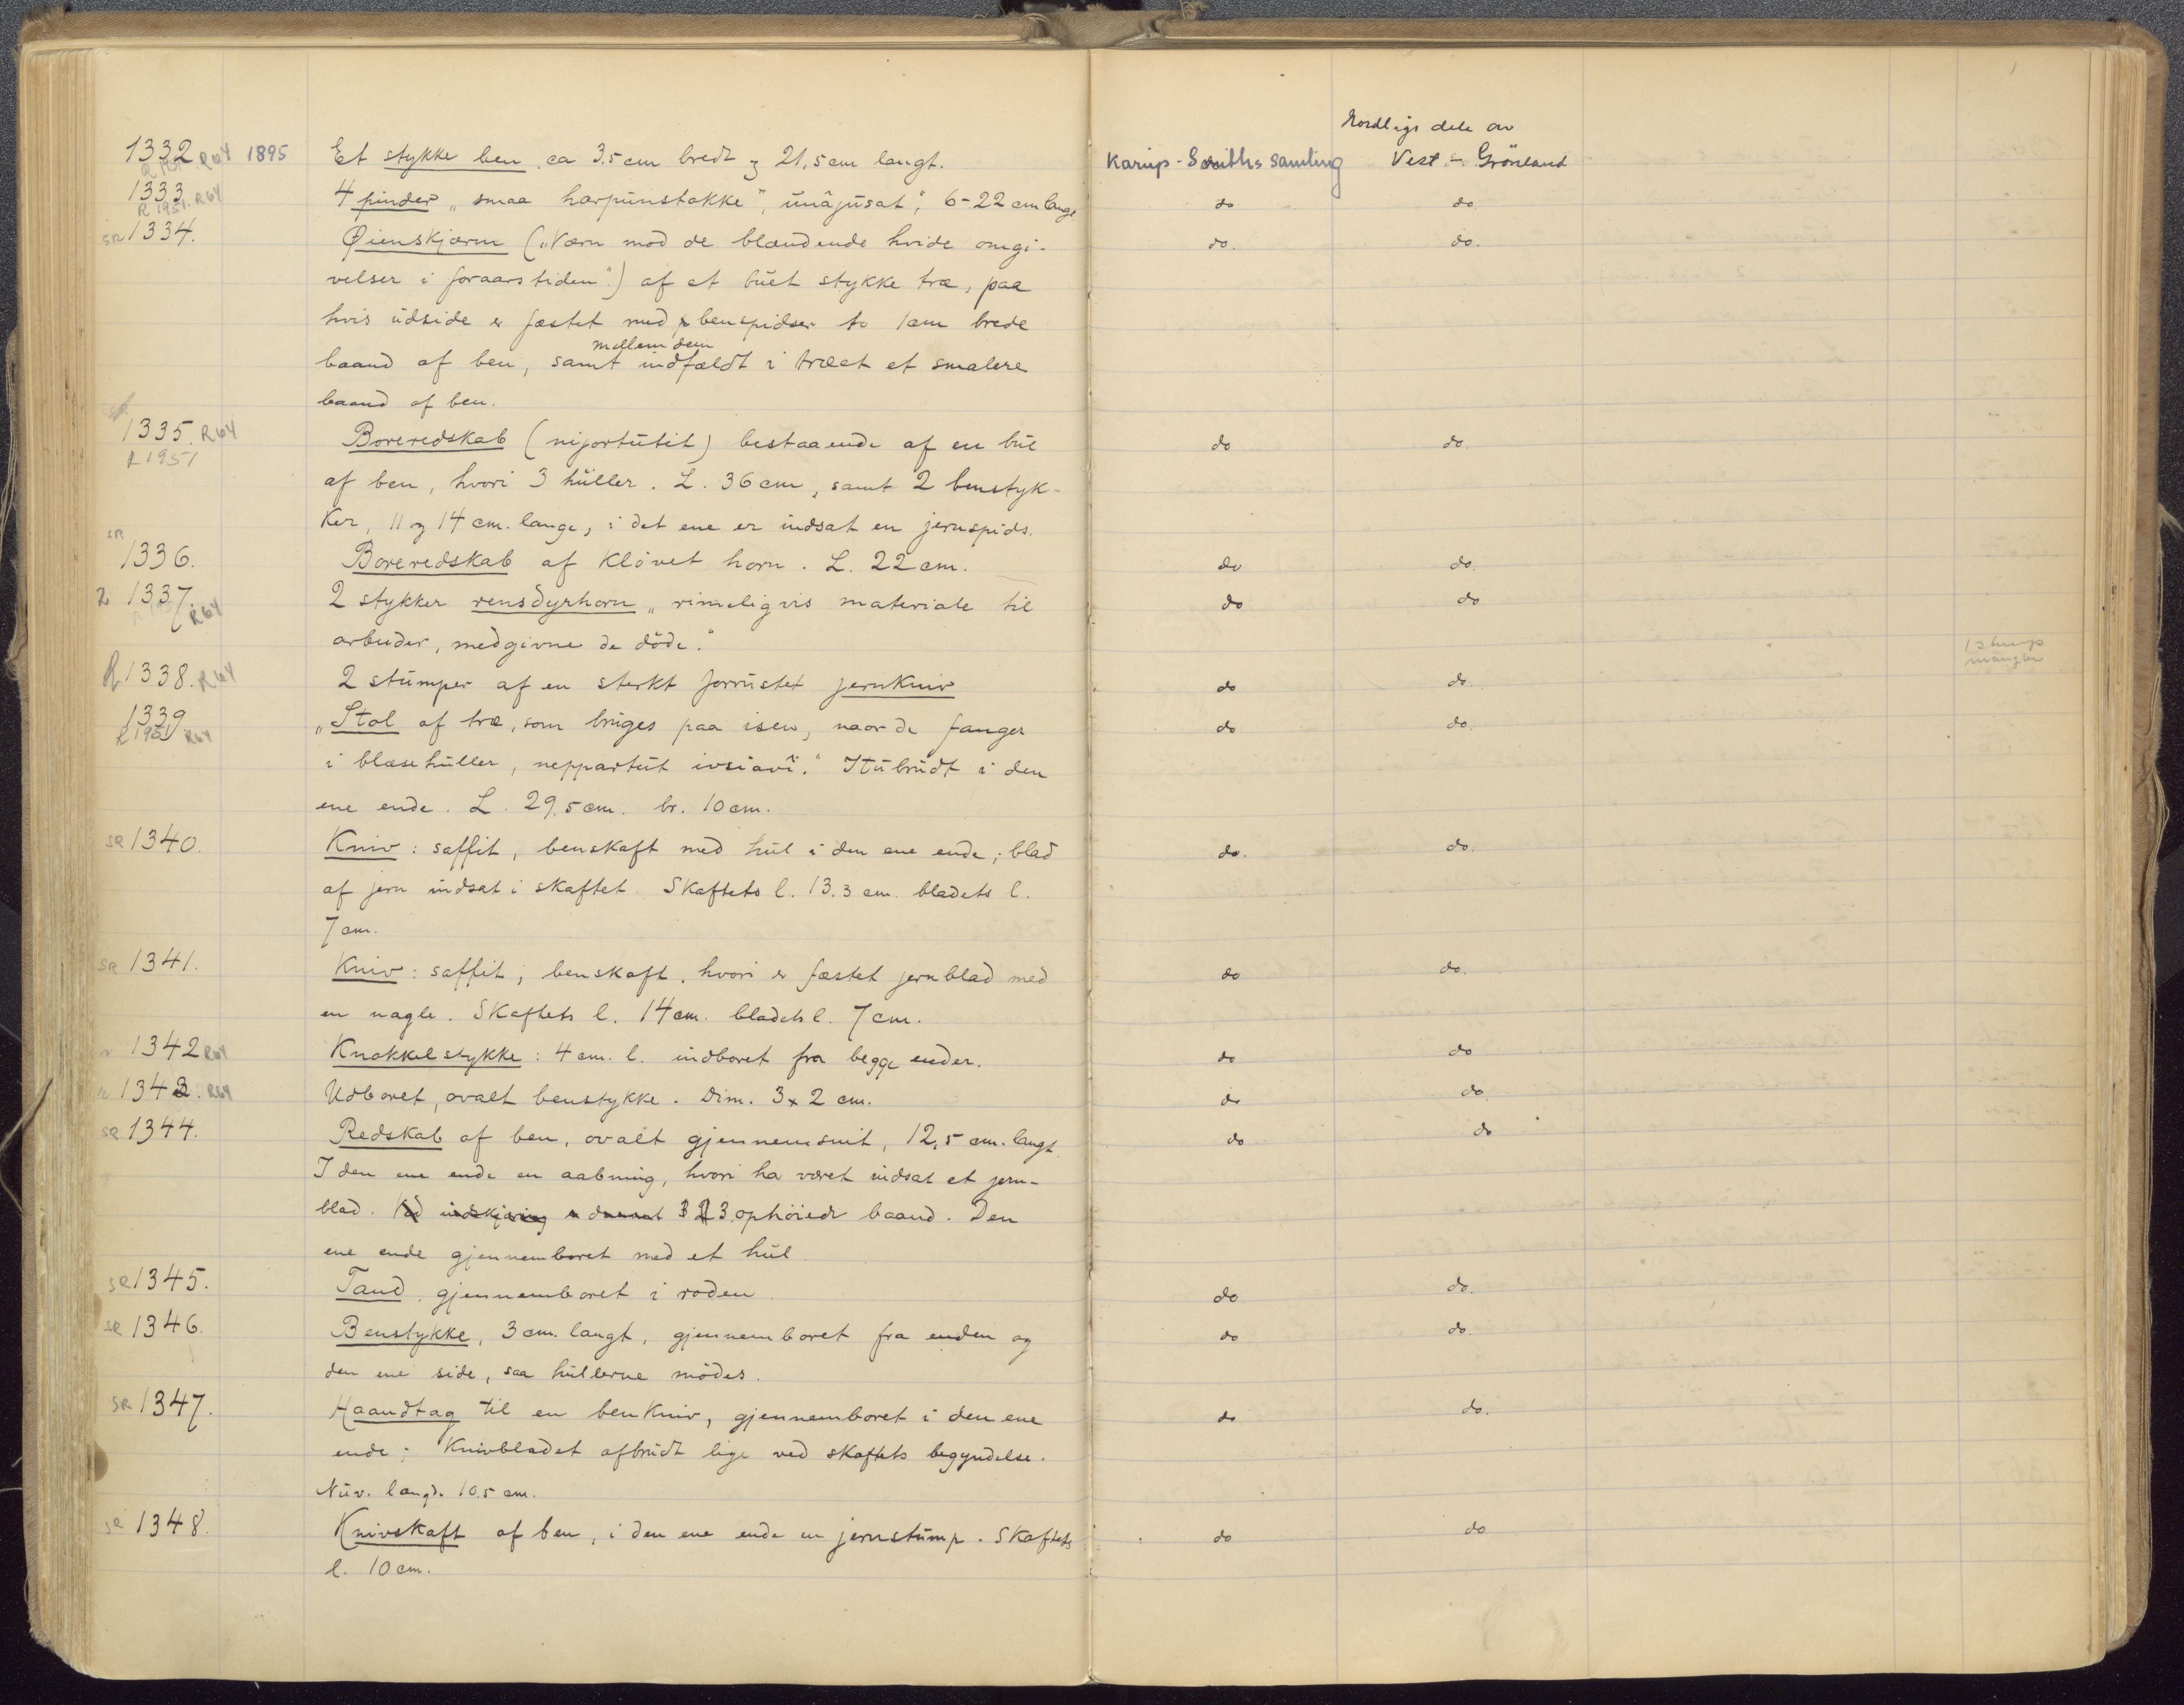 Nordligs dele av
1332 R64 1895 Et stykke ben, ca 3,5 cm bredt og 21,5 cm langt. Karup-Smiths samling Vest-Grönland
1333 4 pinder „smaa harpunstokke”, unâjusat”, 6-22 cm lange do do.
R 1951. R64
SR 1334. Øienskjærm („Værn mod de blændende hvide omgi- do. do.
velser i foraarstiden”) af et buet stykke træ, paa
hvis udside er fæstet med benspidser to 1 cm brede
mellem dem
baand af ben, samt indfældt i træet et smalere
baand af ben.
1335. R64 Boreredskab (nijortutit) bestaaende af en bue do do.
R 1951
af ben, hvori 3 huller. L. 36 cm, samt 2 benstyk-
ker, 11 og 14 cm. lange, i det ene er indsat en jernspids.
SR
1336. Boreredskab af klövet horn. L. 22 cm. do do.
2 1337. R64 2 stykker rensdyrhorn „rimeligvis materiale til do do
arbeider, medgivne de döde.”
1 stump
mangler
R 1338. R64 2 stumper af en sterkt forrustet jernkniv do do.
1339 „Stol af træ, som bruges paa isen, naar de fanger do do.
R 1951 R64
i blæsehuller, neppartut ivsiavî.” Itubrudt i den
ene ende. L. 29,5 cm. br. 10 cm.
SR 1340. Kniv: saffit, benskaft med hul i den ene ende; blad do. do.
af jern indsat i skaftet. Skaftets l. 13.3 cm. bladets l.
7 cm.
SR 1341. Kniv: saffit; benskaft, hvori er fæstet jernblad med do do.
en nagle. Skaftets l. 14 cm. bladets l. 7 cm.
1342 R64 Knokkelstykke: 4 cm. l. indboret fra begge ender. do do
1343. R64 Udboret, ovalt benstykke. Dim. 3 x 2 cm. do do.
SR 1344. Redskab af ben, ovalt gjennemsnit, 12,5 cm. langt. do do
I den ene ende en aabning, hvori ha været indsat et jern-
blad. Ved indskjæring er dannet 3 ophöiede baand. Den
ene ende gjennemboret med et hul.
SR 1345. Tand, gjennemboret i roden. do do.
SR 1346. Benstykke, 3 cm. langt, gjennemboret fra enden og do do.
den ene side, saa hullerne mödes.
SR 1347. Haandtag til en benkniv, gjennemboret i den ene do do.
ende; knivbladet afbrudt lige ved skaftets begyndelse.
Nuv. længd. 10,5 cm.
SR 1348. Knivskaft af ben, i den ene ende en jernstump. Skaftets do do
l. 10 cm.